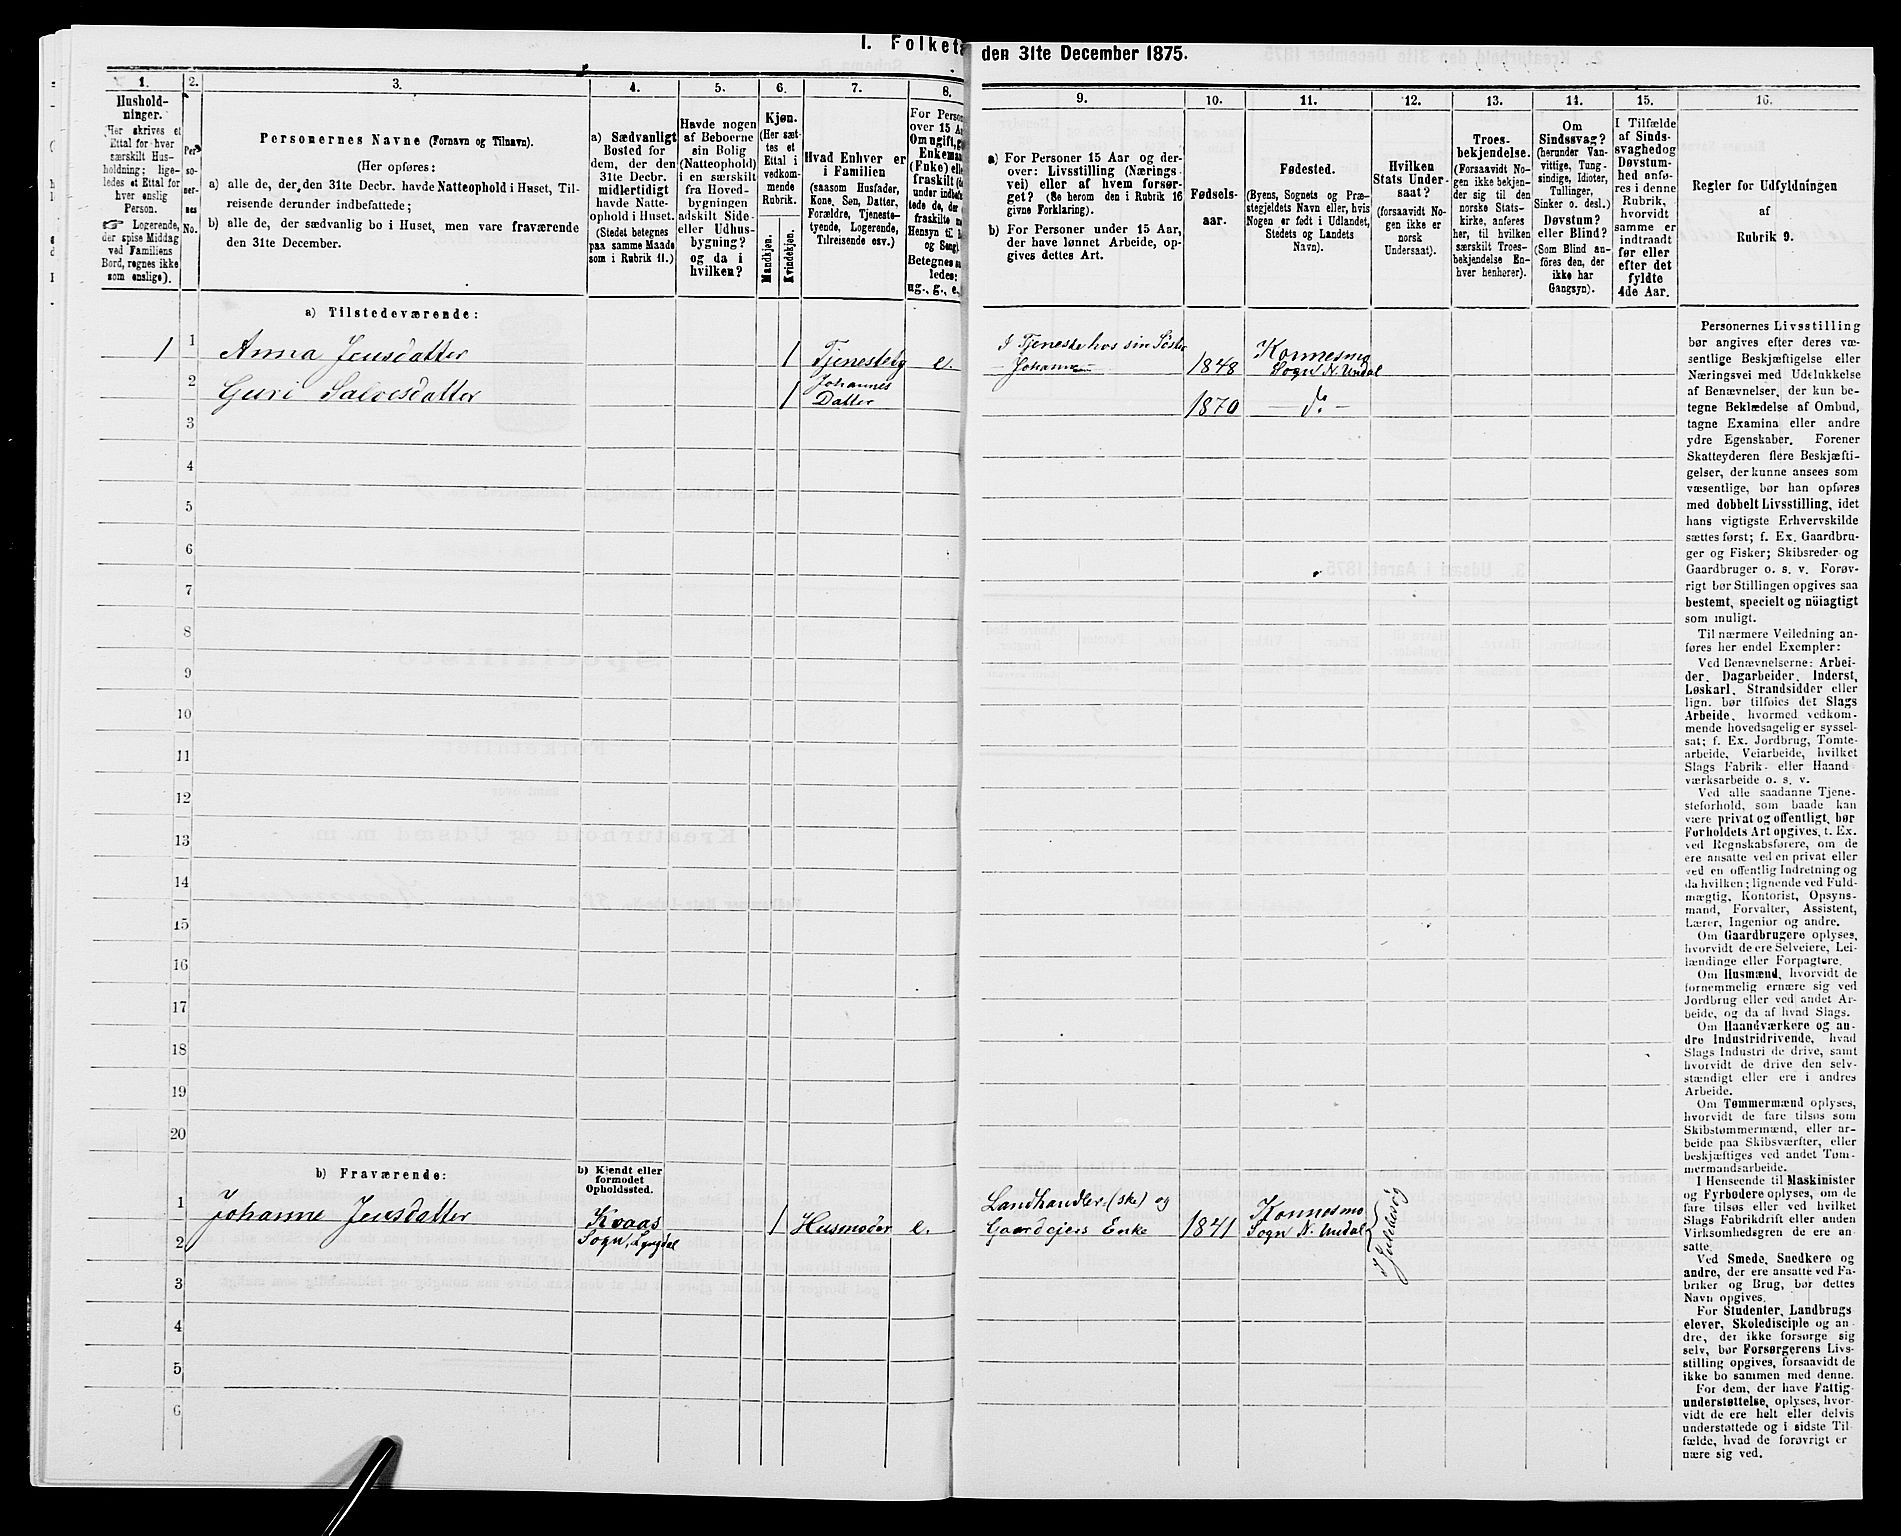 I. Folketæ
den 31te December 1875.
1.
Hushold-
ninger.
Her skrives et
Ettal for hver
særskilt Hus-
holdning; lige-
ledes et Ettal for
hver enslig
Person.
☞ Logerende,
der spise Middag
ved Familiens
Bord, regnes ikke
som enslige).
2.
Per-
so-
ner-
nes
No.
3.
Personernes Navne (Fornavn og Tilnavn).
(Her opføres:
a) alle de, der, den 31te Decbr. havde Natteophold i Huset, Til-
reisende derunder indbefattede;
b) alle de, der sædvanlig bo i Huset, men vare fraværende
den 31te December.
4.
a) Sædvanligt
Bosted for
dem, der den
31te Decbr.
midlertidigt
havde Natte-
ophold i Huset.
(Stedet betegnes
paa samme Maade
som i Rubrik 11.)
5.
Havde nogen
af Beboerne
sin Bolig
(Natteophold)
i en særskilt
fra Hoved-
bygningen
adskilt Side-
eller Udhus-
bygning?
og da i
hvilken?
6.
Kjøn.
(Her sæt-
tes et
Ettal i
vedkom-
mende
Rubrik.
Mandkjøn.
Kvindekjøn.
7.
Hvad Enhver er
i Familien
(saasom Husfader,
Kone, Søn, Datter,
Forældre, Tjeneste-
tyende, Logerende,
Tilreisende osv.)
8.
For Person
over 15 Aa
Om ugift, g
Enkema
(Enke) elle
fraskilt
under indbef
tede de, der
fraskilte
Hensyn til
og Seng).
Betegnes sa
ledes:
ug., g., e.,
9.
a) For Personer 15 Aar og der-
over: Livsstilling (Nærings-
vei) eller af hvem forsør-
get? (Se herom den i Rubrik 16
givne Forklaring).
b) For Personer under 15 Aar,
der have lønnet Arbeide, op-
gives dettes Art.
10.
Fødsels-
aar.
11.
Fødested.
(Byens, Sognets og Præ-
stegjeldets Navn eller, hvis
Nogen er født i Udlandet,
Stedets og Landets
Navn).
12.
Hvilken
Stats Under-
saat?
(forsaavidt No-
gen ikke er
norsk
Undersaat).
13.
Troes-
bekjendelse.
(Forsaavidt No-
gen ikke bekjen-
der sig til den
norske Stats-
kirke, anføres
her, til hvilken
særskilt Troes-
bekjendelse En-
hver henhører).
14.
Om
Sindssvag?
(herunder Van-
vittige, Tung-
sindige, Idioter,
Tullinger,
Sinker o. desl.)
Døvstum?
eller Blind?
(Som Blind an-
føres den, der
ikke har
Gangsyn).
15.
I Tilfælde
af Sinds-
svaghed og
Døvstum-
hed anfø-
res i denne
Rubrik,
hvorvidt
samme er
indtraadt
før eller
efter det
fyldte
4de Aar.
16.
Regler for Udfyldningen
af
Rubrik 9.
a) Tilstedeværende:
1 1 Anna Jensdatter 1 Tjenestetyg e. I Tjeneste hos sin Søster Johanne 1848 Konnesmo Sogn N. Undal
2 Guri Salvesdatter 1 Johannes Datter 1870 — do —
3
4
5
6
7
8
9
10
11
12
13
14
15
16
17
18
19
20
b) Fraværende:
b) Kjendt eller
formodet
Opholdssted.
1 Johanne Jensdatter Kvaas Sogn, Lyngdal 1 Husmoder e. Landhandler (ske) og Gaardejers Enke 1841 Konnesmo Sogn N. Undal
2
3
4
5
6
Personernes Livsstilling
bør angives efter deres væ-
sentlige Beskjæftigelse eller
Næringsvei med Udelukkelse
af Benævnelser, der kun be-
tegne Beklædelse af Ombud,
tagne Examina eller andre
ydre Egenskaber. Forener
Skatteyderen flere Beskjæfti-
gelser, der kunne ansees som
væsentlige, bør han opføres
med dobbelt Livsstilling, idet
hans vigtigste Erhvervskilde
sættes først; f. Ex. Gaardbru-
ger og Fisker; Skibsreder og
Gaardbruger o. s. v. Forøv-
rigt bør Stillingen opgives saa
bestemt, specielt og nöiagtigt
som muligt.
Til nærmere Veiledning an-
føres her endel Exempler:
Ved Benævnelserne: Arbei-
der, Dagarbeider, Inderst,
Løskarl, Strandsidder eller
lign. bør tilføies det Slags
Arbeide, hvormed vedkom-
mende hovedsagelig er syssel-
sat; f. Ex. Jordbrug, Tomte-
arbeide, Veiarbeide, hvilket
Slags Fabrik- eller Haand
værksarbeide o. s. v.
Ved alle saadanne Tjene-
steforhold, som baade kan
være privat og offentligt, bør
Forholdets Art opgives, t. Ex.
ved Regnskabsførere, om de
ere ansatte ved en privat eller
ved en offentlig Indretning og
da hvilken; lignende ved Fuld-
mægtig, Kontorist, Opsyns-
mand, Forvalter, Assistent,
Lærer, Ingeniør og andre.
Om Gaardbrugere oplyses,
hvorvidt de ere Selveiere, Lei-
lændinge eller Forpagtere.
Om Husmænd, hvorvidt de
fornemmelig ernære sig ved
Jordbrug eller ved andet Ar-
beide, og da af hvad Slags.
Om Haandværkere og an-
dre Industridrivende, hvad
Slags Industri de drive, samt
hvorvidt de drive den selv-
stændigt eller ere i andres
Arbeide.
Om Tømmermænd oplyses,
hvorvidt de fare tilsøs som
Skibstømmermænd, eller ar-
beide paa Skibsværfter, eller
beskjæftiges ved andet Tøm-
mermandsarbeide.
I Henseende til Maskinister
og Fyrbødere oplyses, om de
fare tilsøs eller ved hvilket
Slags Fabrikdrift eller anden
Virksomhedsgren de ere an-
satte.
Ved Smede, Snedkere og
andre, der ere ansatte ved Fa-
briker og Brug, bør dettes
Navn opgives.
For Studenter, Landbrugs
elever, Skoledisciple og an-
dre, der ikke forsørge sig
selv, bør Forsørgerens Livs-
stilling opgives, forsaavidt de
ikke bo sammen med denne.
For dem, der have Fattig-
understøttelse, oplyses, hvor-
vidt de ere helt eller delvis
understøttede og i sidste Til-
fælde, hvad de forøvrigt er-
nære sig ved.